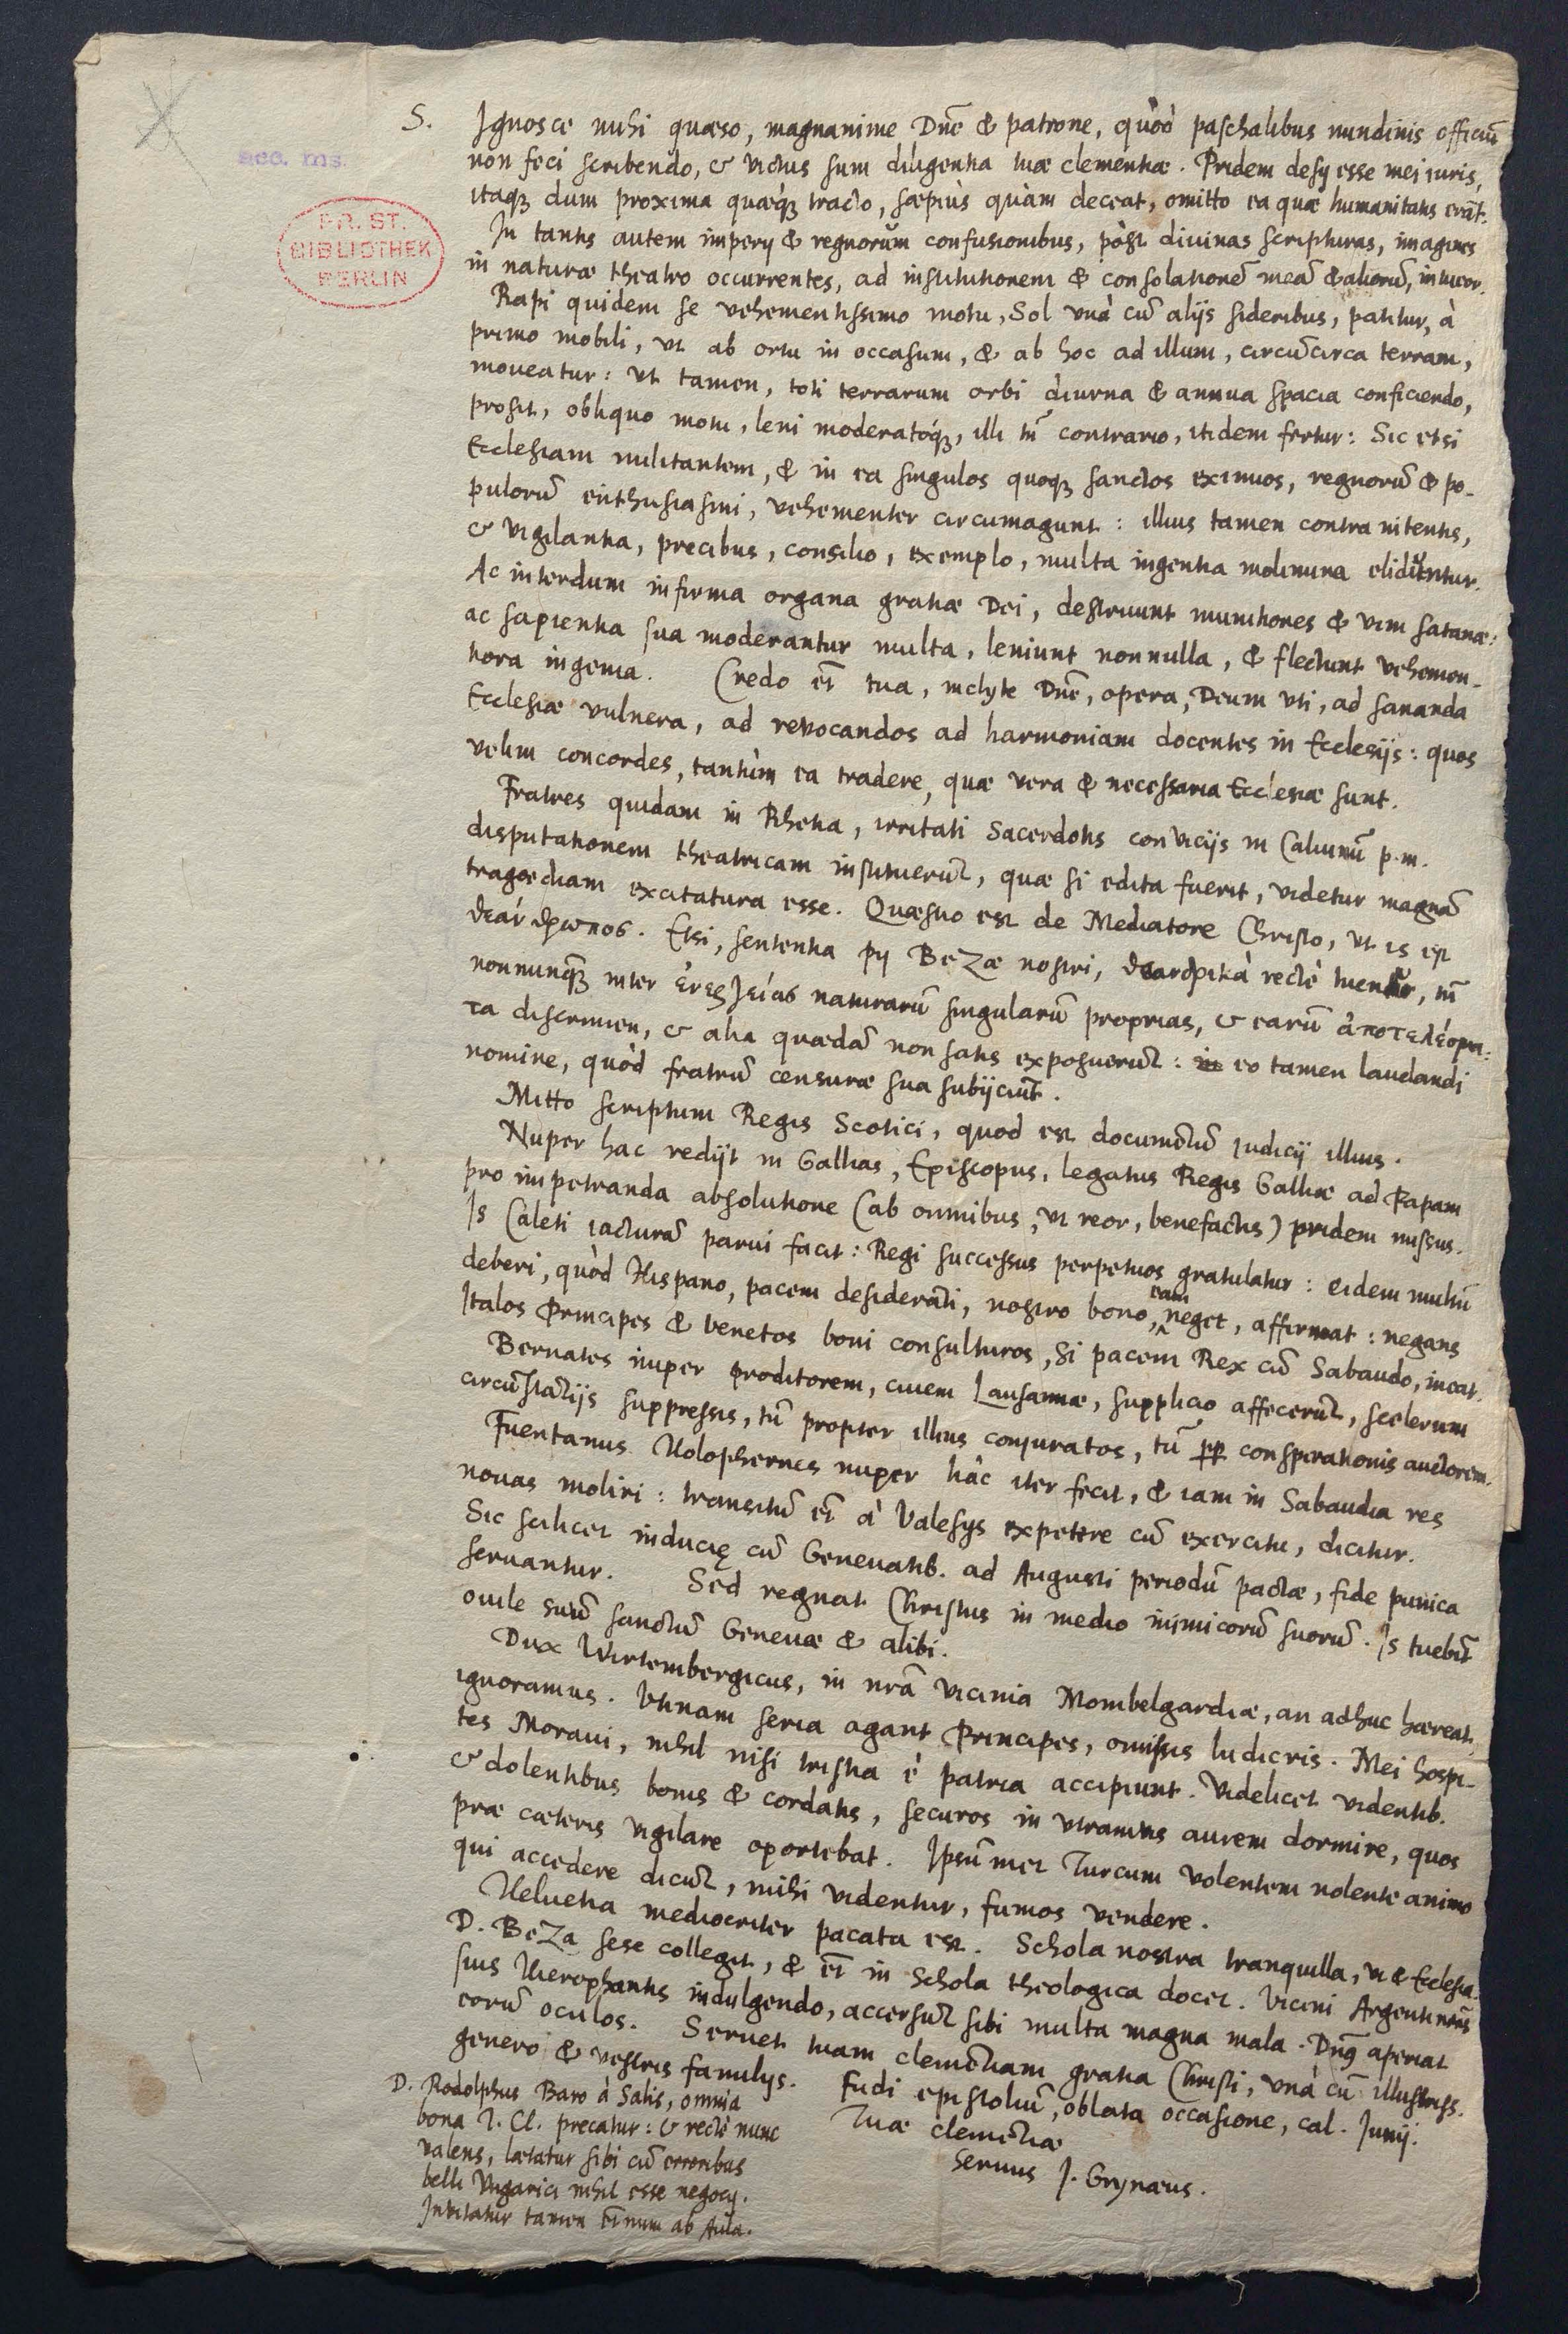 acc. ms.
PR. ST.
BIBLIOTHEK
BERLIN
S. Ignosce mihi quæso, magnanime Dn̄e & patrone, quòd paschalibus nundinis officiū
non feci scribendo, & victus sum diligentia tuæ clementiæ. Pridem desij esse mei iuris,
itaqꝫ dum proxima quæqꝫ tracto, sæpiùs quàm deceat, omitto ea quæ humanitatis erāt.
In tantis autem imperij & regnorum confusionibus, pòst divinas scripturas, imagines
in naturæ theatro occurrentes, ad institutionem & consolationē meā & aliorū, intueor.
Rapi quidem se vehementissimo motu, Sol vnà cū alijs sideribus, patitur, à
primo mobili, vt ab ortu in occasum, & ab hoc ad illum, circūcirca terram,
moveatur: vt tamen, toti terrarum orbi diurna & annua spacia conficiendo,
prosit, obliquo motu, leni moderatoqꝫ, illi tn̄ contrario, itidem fertur: Sic etsi
Ecclesiam militantem, & in ea singulos quoqꝫ sanctos eximios, regnorū & po-
pulorū enthusiasmi, vehementer circumagunt: illius tamen contra nitentis,
& vigilantia, precibus, consilio, exemplo, multa ingentia molimina eliduntur.
Ac interdum infirma organa gratiæ Dei, destruunt munitiones & vim satanæ:
ac sapientia sua moderantur multa, leniunt nonnulla, & flectunt vehemen-
tiora ingenia. Credo et̄ tua, inclyte Dn̄e, opera, Deum vti, ad sananda
Ecclesiæ vulnera, ad revocandos ad harmoniam docentes in Ecclesijs: quos
velim concordes, tantùm ea tradere, quæ vera & necessaria Ecclesiæ sunt.
Fratres quidam in Rhetia, irritati Sacerdotis convicijs in Calvinū p.m.
disputationem theatricam instituerūt, quæ si edita fuerit, videtur magnā
tragoediam excitatura esse. Quæstio est de Mediatore Christo, vt is est
θεάνθρωπος. Etsi, sententia pij BeZæ nostri, θεανδρικὰ rectè tuentur, tn̄
nonnunqꝫ inter ἐνεργείας naturarū singularū proprias, & earū ἀποτελέσμα-
τα discrimen, & alia quædā non satis exposuerūt: eo tamen laudandi
nomine, quòd fratrū censuræ sua subijciūt.
Mitto scriptum Regis Scotici, quod est documētū iudicij illius.
Nuper hac redijt in Gallias, Episcopus, legatus Regis Galliæ ad Papam
pro impetranda absolutione (ab omnibus, vt reor, benefactis) pridem missus.
Is Caleti iacturā parvi facit: Regi successus perpetuos gratulatur: eidem multū
deberi, quòd Hispano, pacem desiderāti, nostro bono, eam neget, affirmat: negans
Italos Principes & Venetos boni consulturos, si pacem Rex cū Sabaudo, ineat.
Bernates nuper proditorem, civem Lausannæ, supplicio affecerūt, scelerum
circūstātijs suppressis, tū propter illius conjuratos, tū ꝓp conspirationis auctorem.
Fuentanus Holophernes nuper hàc iter fecit, & iam in Sabaudia res
novas moliri: transitū et̄ à Valesijs expetere cū exercitu, dicitur.
Sic scilicet induciæ cū Genevatib. ad Augusti periodū pactæ, fide punica
servantur. Sed regnat Christus in medio inimicorū suorū. Is tuebit̄
ovile suum sanctū Genevæ & alibi.
Dux Wirtembergicus, in nr̄a vicinia Mombelgardiæ, an adhuc hæreat,
ignoramus. Vtinam seria agant Principes, omissis ludicris. Mei hospi-
tes Moravi, nihil nisi tristia è patria accipiunt. Videlicet videntib.
& dolentibus bonis & cordatis, securos in vtramvis aurem dormire, quos
præ cæteris vigilare oportebat. Ipsūmet Turcum volentem nolente animo
qui accedere dicūt, mihi videntur, fumos vendere.
Helvetia mediocriter pacata est. Schola nostra tranquilla, vt & Ecclesia.
D. BeZa sese collegit, & et̄ in Schola theologica docet. Vicini Argentinēses
suis Hierophantis indulgendo, accersūt sibi multa magna mala. Dn̄s aperiat
eorū oculos. Servet tuam clemētiam gratia Christi, vnà cū illustriss.
genero & vestris familijs. Fudi epistoliū, oblata occasione, cal. Junij.
Tuæ clemētiæ
servus J. Grynæus.
D. Rodolphus Baro à Salis, omnia
bona T. Cl. precatur: & rectè nunc
valens, lætatur sibi cū erroribus
belli Vngarici nihil esse negocij.
Invitatur tamen ab Aula.